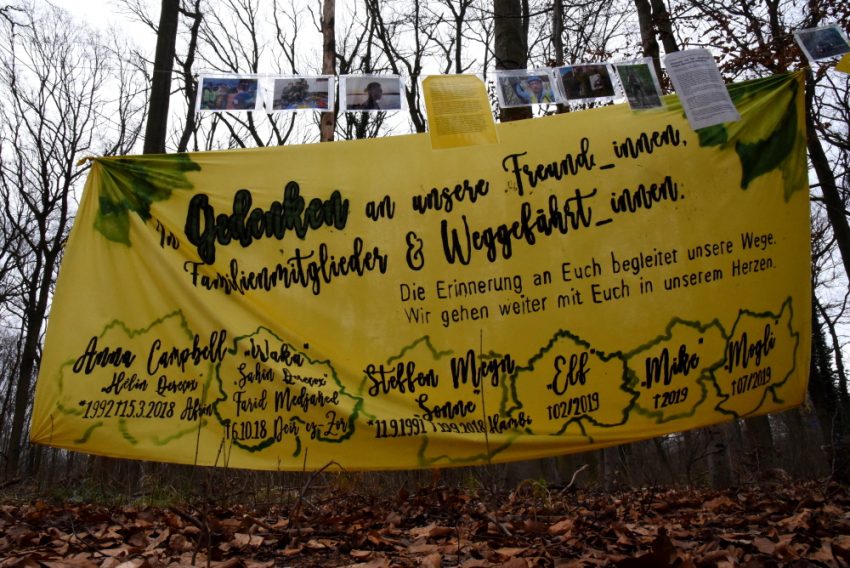 In Gedenken an unsere Freund_innen,
Familienmitglieder & Weggefährt_innen.
Die Erinnerung an Euch begleitet unsere Wege.
Wir gehen weiter mit Euch in unserem Herzen.
Anna Campbell
"Hêlîn Qerecox"
*1992 †15.3.2018 Afrin
"Waka"
Şahin Qerecox
Farid Medjahed
†6.10.18 Deir ez Zor
Steffen Meyn
"Sonne"
*11.9.1991 †19.9.2018 Hambi
"Elf"
†02/2019
"Mike"
†2019
"Mogli"
†07/2019